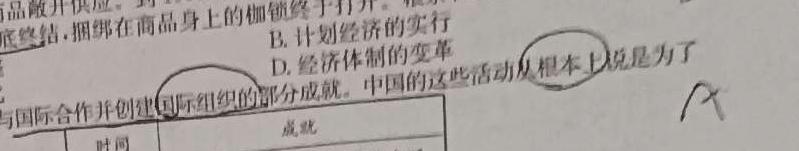 品敞开供应。到
底终结,捆绑在商品身上的枷锁终于打开。
B. 计划经济的实行
D. 经济体制的变革
与国际合作并创建国际组织的部分成就。中国的这些活动从根本上说是为了
A
时间 成就